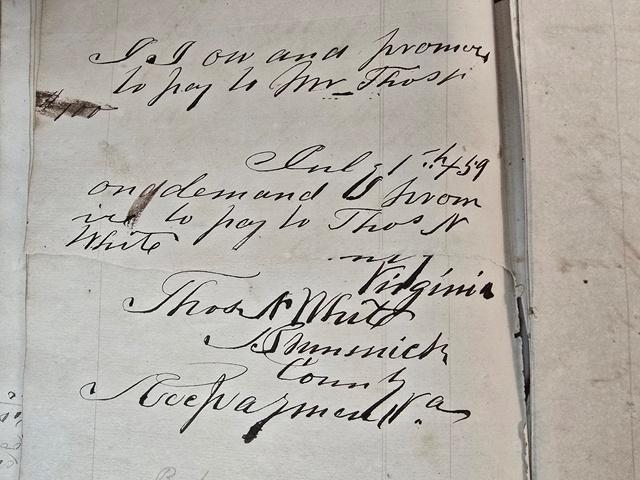 I I ow and promis
to pay to Mr Thos
July 1st 59
on demand I prom
ise to pay to Thos N
White
my
Virginia
Thos N White
Brunswick
County
Va